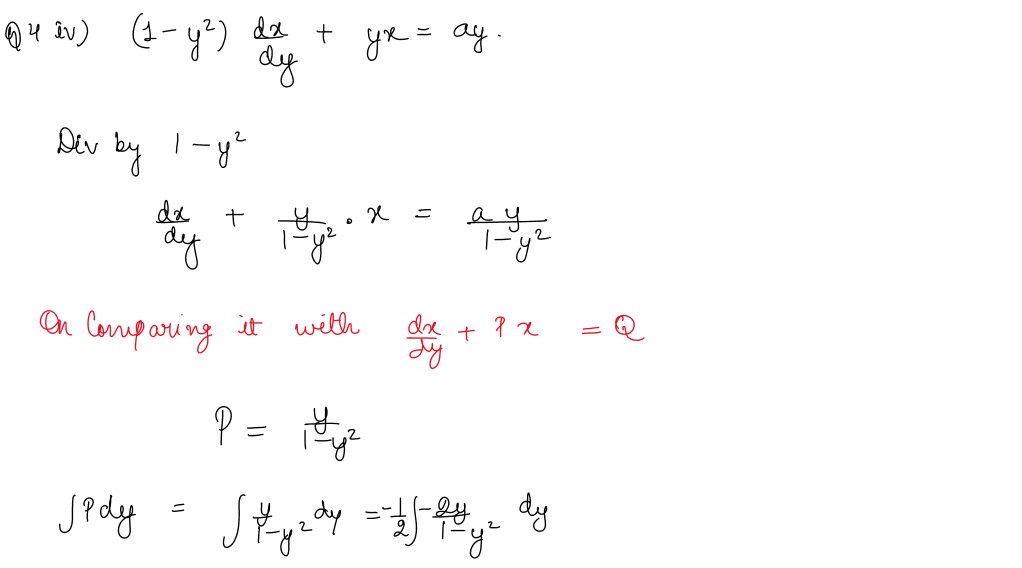 Q4 iv) (1 - y²) dx/dy + yx = ay.
Div by 1 - y²
dx/dy + y/(1-y²) · x = a y/(1-y²)
On Comparing it with dx/dy + P x = Q
P = y/(1-y²)
∫Pdy = ∫ y/(1-y²) dy = -1/2 ∫ -2y/(1-y²) dy